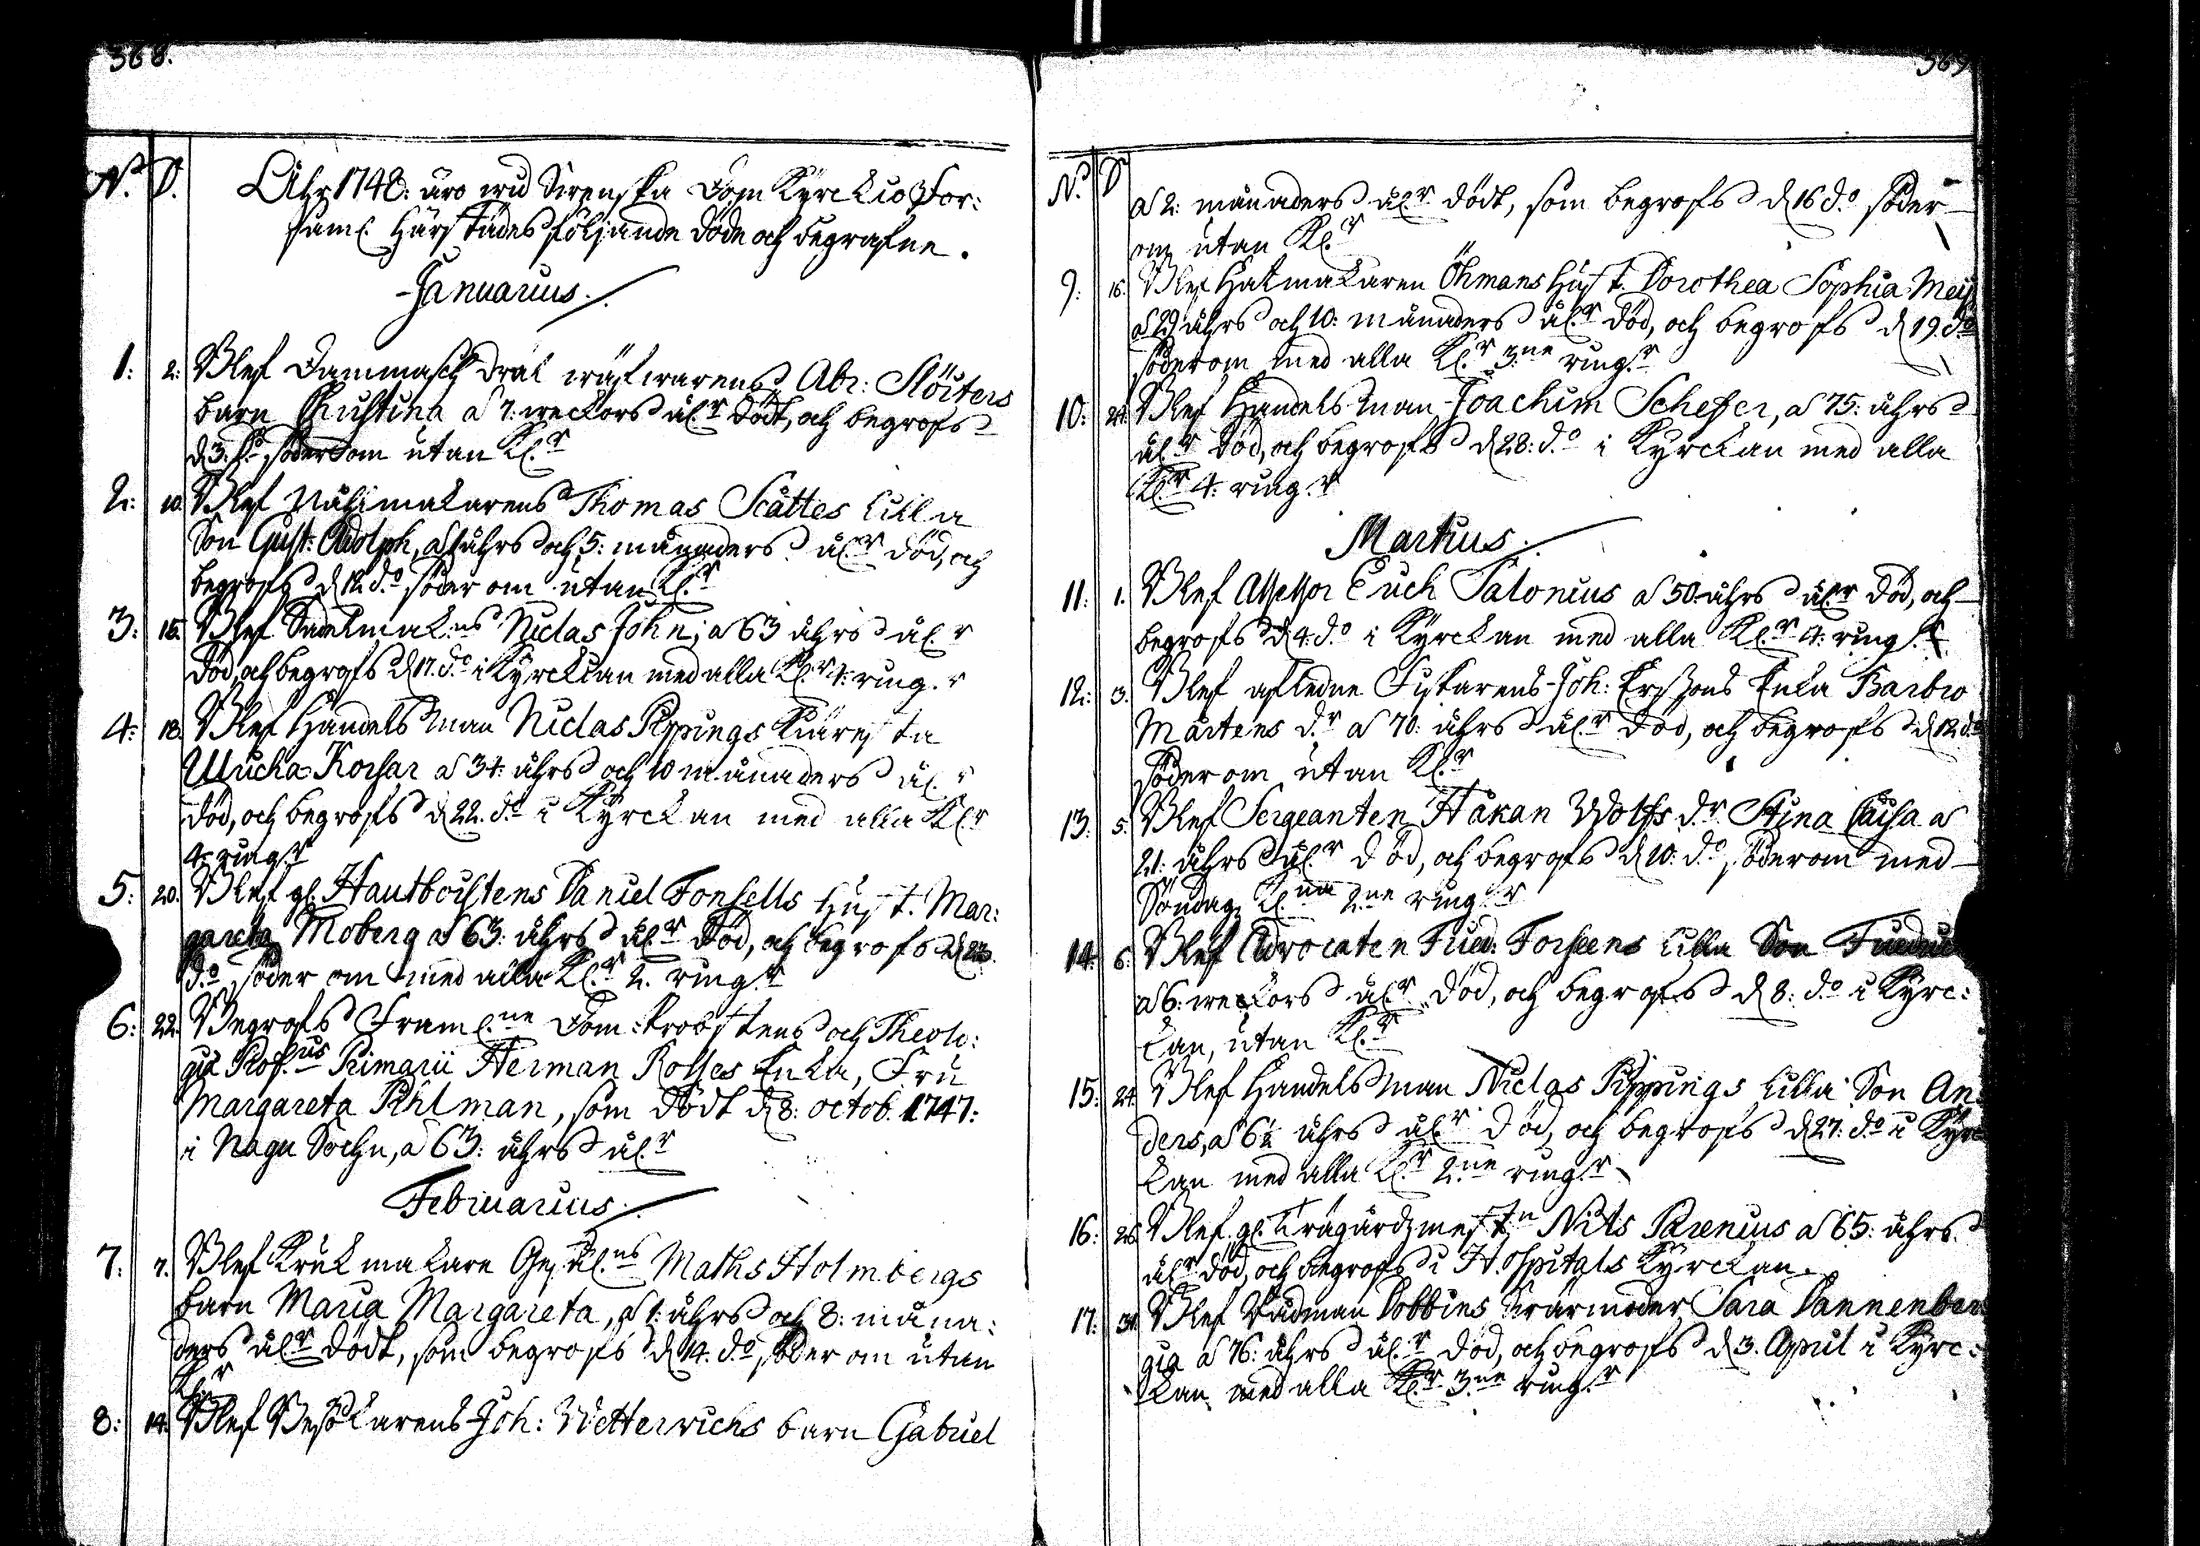 368.
N.o D. Åhr 1748: äro wid Swenska Dom Kyrckio För:
saml. härstädes följande döde och begrafne.
Januarius.
1: 2: Blef Dammasch dräl wäfwarens Abr: Slöiters
barn Christina a 7: weckors ål.r dödt, och begrofs
d 3: d.o söder om utan Kl.r
2: 10. Blef Nålmakarens Thomas Scattes lilla
Son Gust: Adolph, a 1 åhrs och 5: månaders ål.r död, och
begrofs d 12. d.o söder om utan Kl.r
3: 15. Blef Sadelmak.ns Niclas John; a 63 åhrs ål.r
död, och begrofs d 17. d.o i Kyrckian med alla Kl.r 4: ring.r
4: 18. Blef Handels Man Niclas Pippings Kiäresta
Ulricka Korsar a 34: åhrs och 10 månaders ål.r
död, och begrofs d 22. d.o i Kyrckan med alla Kl.r
4: ring.r
5: 20. Blef gl. Hautboistens Daniel Fonsells Hust. Mar:
gareta Moberg a 63: åhrs ål.r död, och begrofs d 23.
d.o söder om med alla Kl.r 2. ring.r
6: 22. Begrofs Framl.ne Dom-Probstens och Theolo:
giæ Prof.ris Primarii Herman Rosses Enka, Fru
Margareta Pihlman, som dödt d 8: octob. 1747:
i Nagu Sochn, a 63: åhrs ål.r
Februarius.
7: 7. Blef Krukmakare Ges.äl.ns Maths Holmbergs
barn Maria Margareta, a 1: åhrs och 8: måna:
ders ål.r dödt, som begrofs d 14. d.o söder om utan
Kl.r
8: 14. Blef Besökarens Joh: Wetterwichs barn Gabriel
369
N.o D
a 2: månaders ål.r dödt, som begrofs d 16 d.o söder
om utan Kl.r
9: 16. Blef Hatmakaren Öhmans Hust. Dorothea Sophia Mei
a 29 åhrs och 10: månaders ål.r död, och begrofs d 19. d.o
söder om med alla Kl.r 3.ne ring.r
10: 24. Blef Handels Man Joachim Scheffer, a 75: åhrs
ål.r död, och begrofs d 28: d.o i Kyrckan med alla
Kl.r 4: ring.r
Martius.
11: 1. Blef Assessor Erich Salonius a 50 åhrs ål.r död, och
begrofs d 4. d.o i Kyrckan med alla Kl.r 4: ring.r
12: 3. Blef afledne Fiskarens Joh: Erssons Enka Barbro
Mårtens d.r a 70: åhrs ål.r död, och begrofs d 12. d.o
söder om utan Kl.r
13: 5. Blef Sergeanten Håkan Wolffs d.r Stina Caisa a
21: åhrs ål.r död, och begrofs d 10: d.o söder om med
Söndags Kl.na 2.ne ring.r
14: 6. Blef Advocaten Fried: Forseens lilla Son Friedric
a 6: weckors ål.r död, och begrofs d 8: d.o i Kyrc:
kan, utan Kl.r
15: 24. Blef Handels Man Niclas Pippings lilla Son An:
ders, a 6½ åhrs ål.r död, och begrofs d 27: d.o i Kyrc
kan med alla Kl.r 2.ne ring.r
16: 25. Blef gl. Trägårdzmest.n Nils Parenius a 65: åhrs
ål.r död, och begrofs i Hospitals Kyrckan.
17: 31. Blef Rådman Bobbins Swärmoder Sara Dannenber
gia a 76: åhrs ål.r död, och begrofs d 3. April i Kyrc:
kan med alla Kl.r 3.ne ring.r